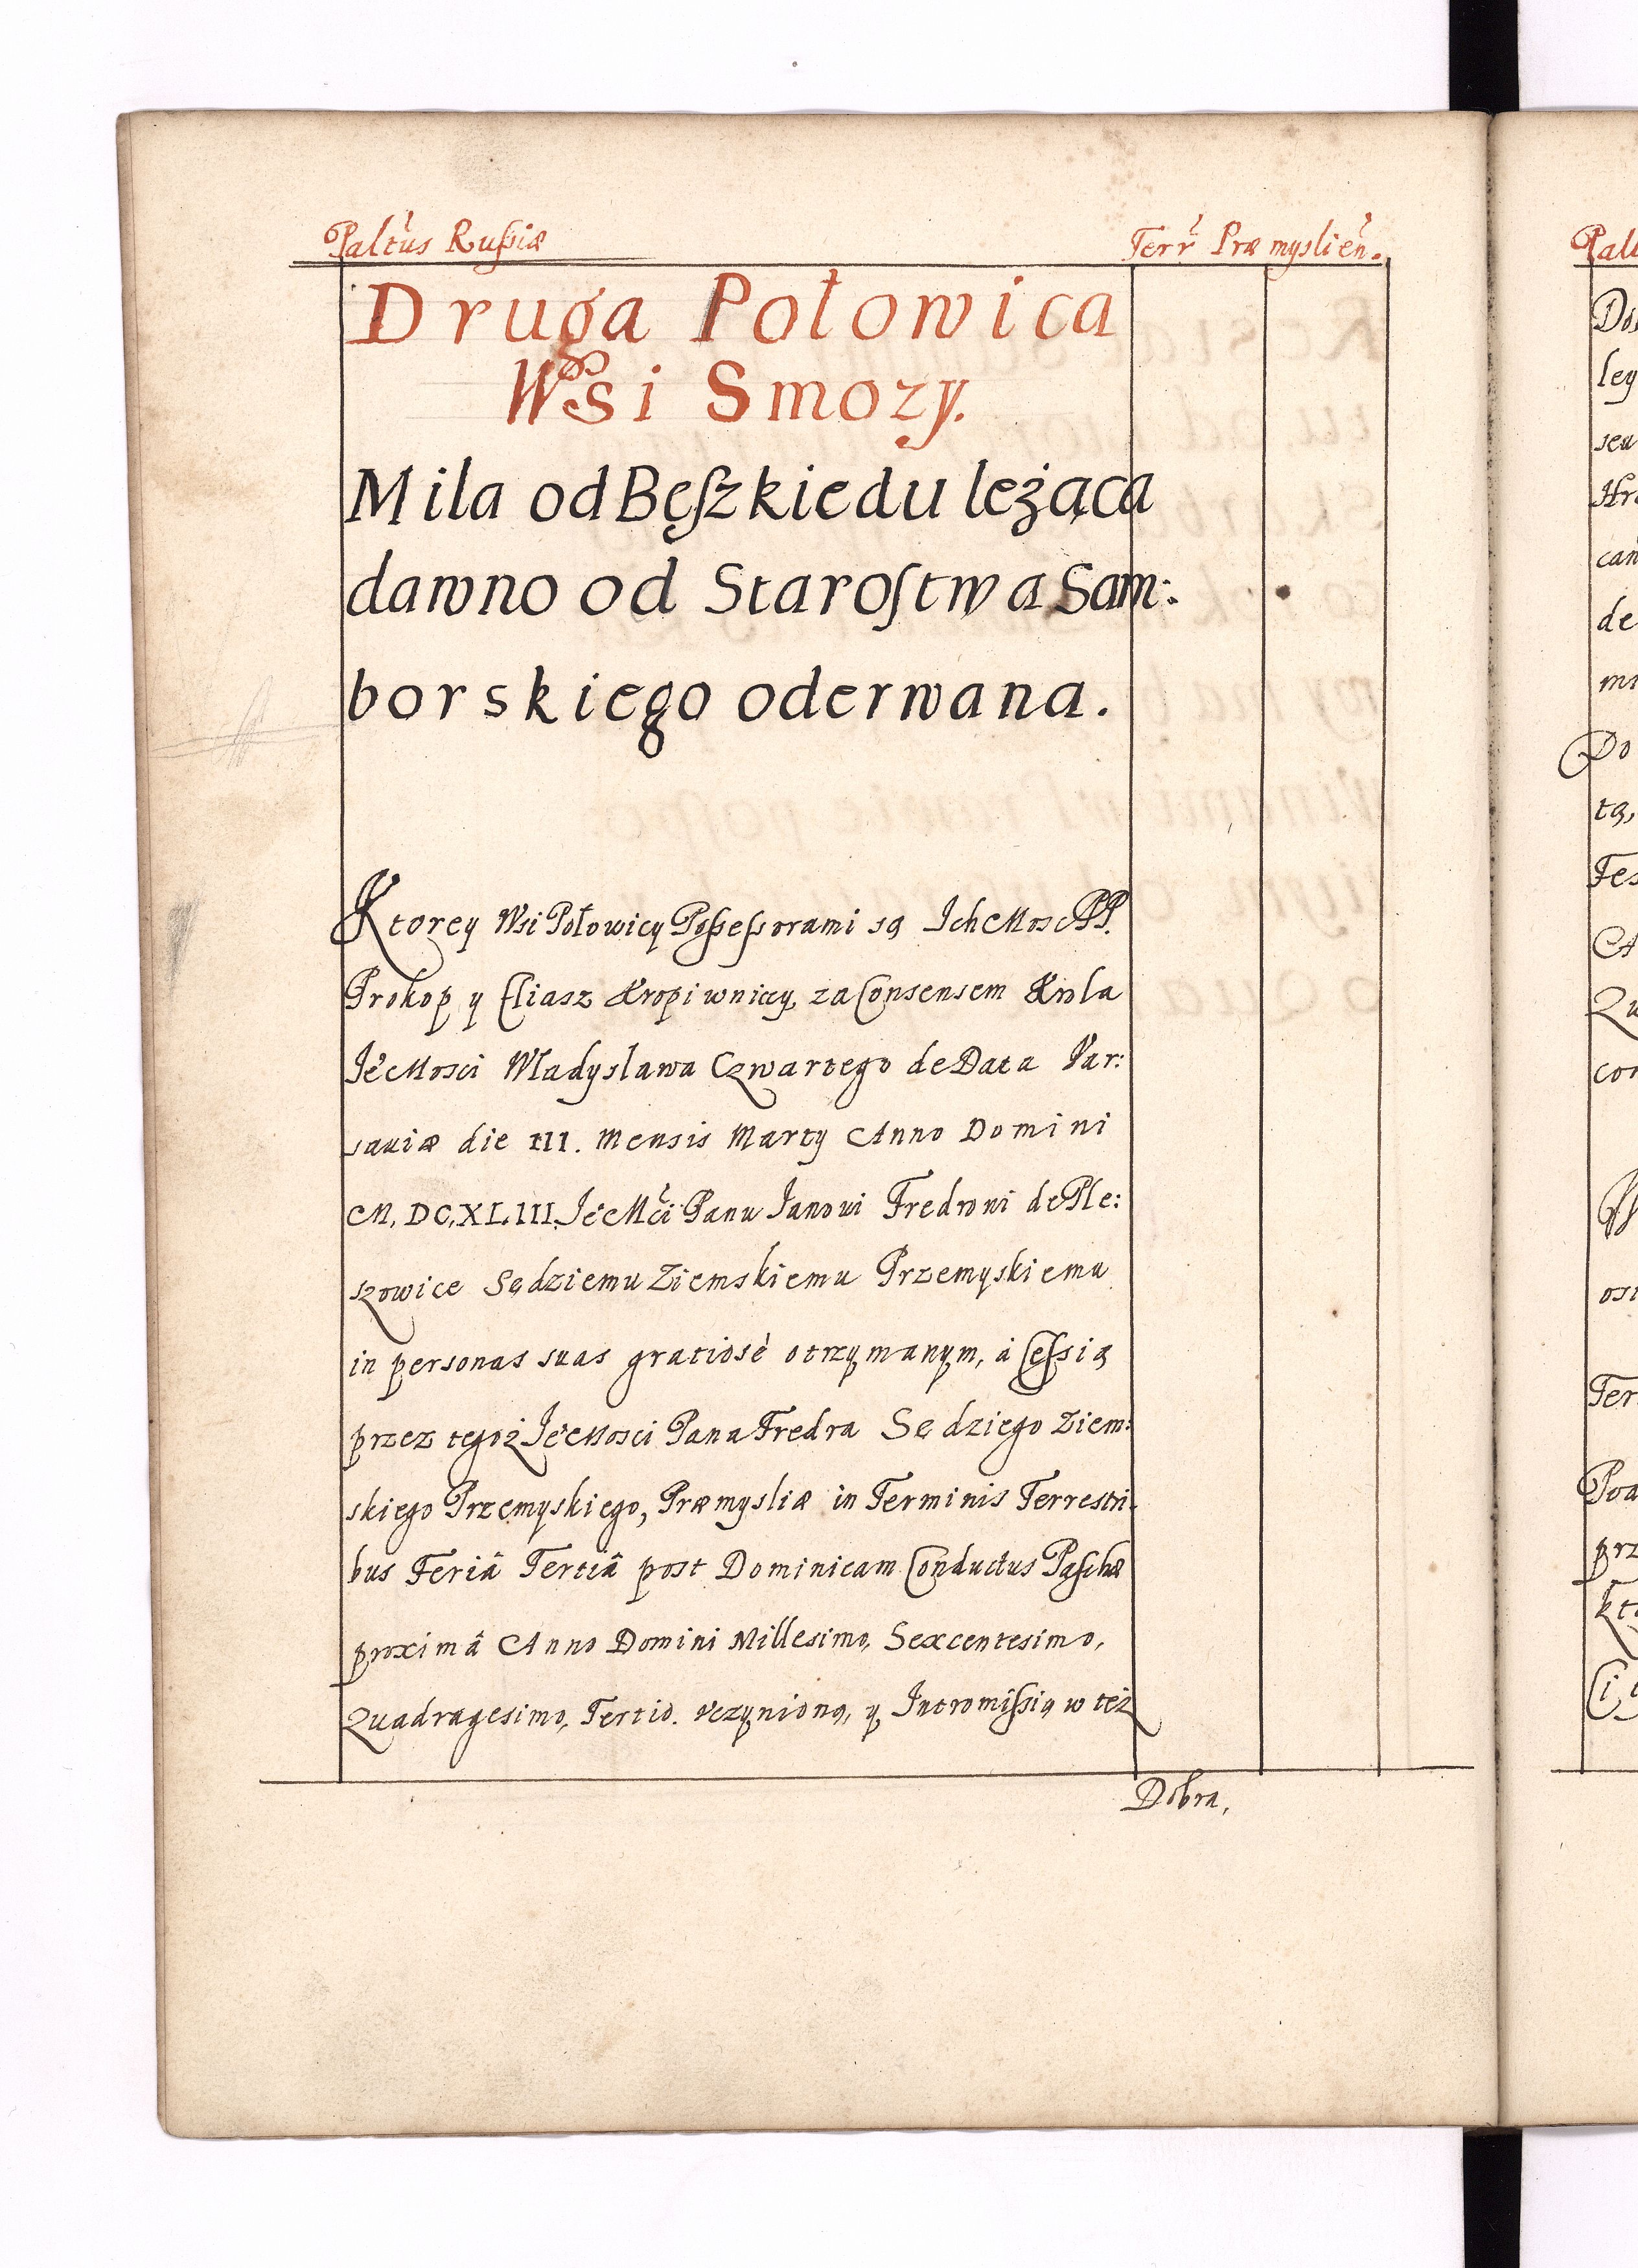 Palt'us Rußiæ
Terr' Præmyslien'.
Druga Połowica
Wsi Smozy.
Mila od Bęſzkiedu leżąca
dawno od Staroſtwa Sam:
borskiego oderwana.
Ktorey Wsi Połowicy Poßeßorami są Ich Mosc PP.
Prokop y Eliasz Kropiwniccy, za Consensem Krola
Je° Mosci Wladyslawa Czwartego de Data Var:
saviæ die III. Mensis Marty Anno Domini
M, DC, XL, III. Je° Mci Panu Janowi Fredroni de Ple:
szowice Sędziemu Ziemskiemu Przemyskiemu
in personas suas gratiosè otrzymanym, á Ceſsią
przez tegoż Je° Mosci Pana Fredra Sędziego Ziem:
skiego Przemyskiego, Præmysliæ in Terminis Terrestri.
bus Feriâ Tertiâ post Dominicam Conductus Paſchæ
proximâ Anno Domini Millesimo, Sexcentesimo,
Quadragesimo, Tertio. vczynioną, y Intromißią w też
Dobra,